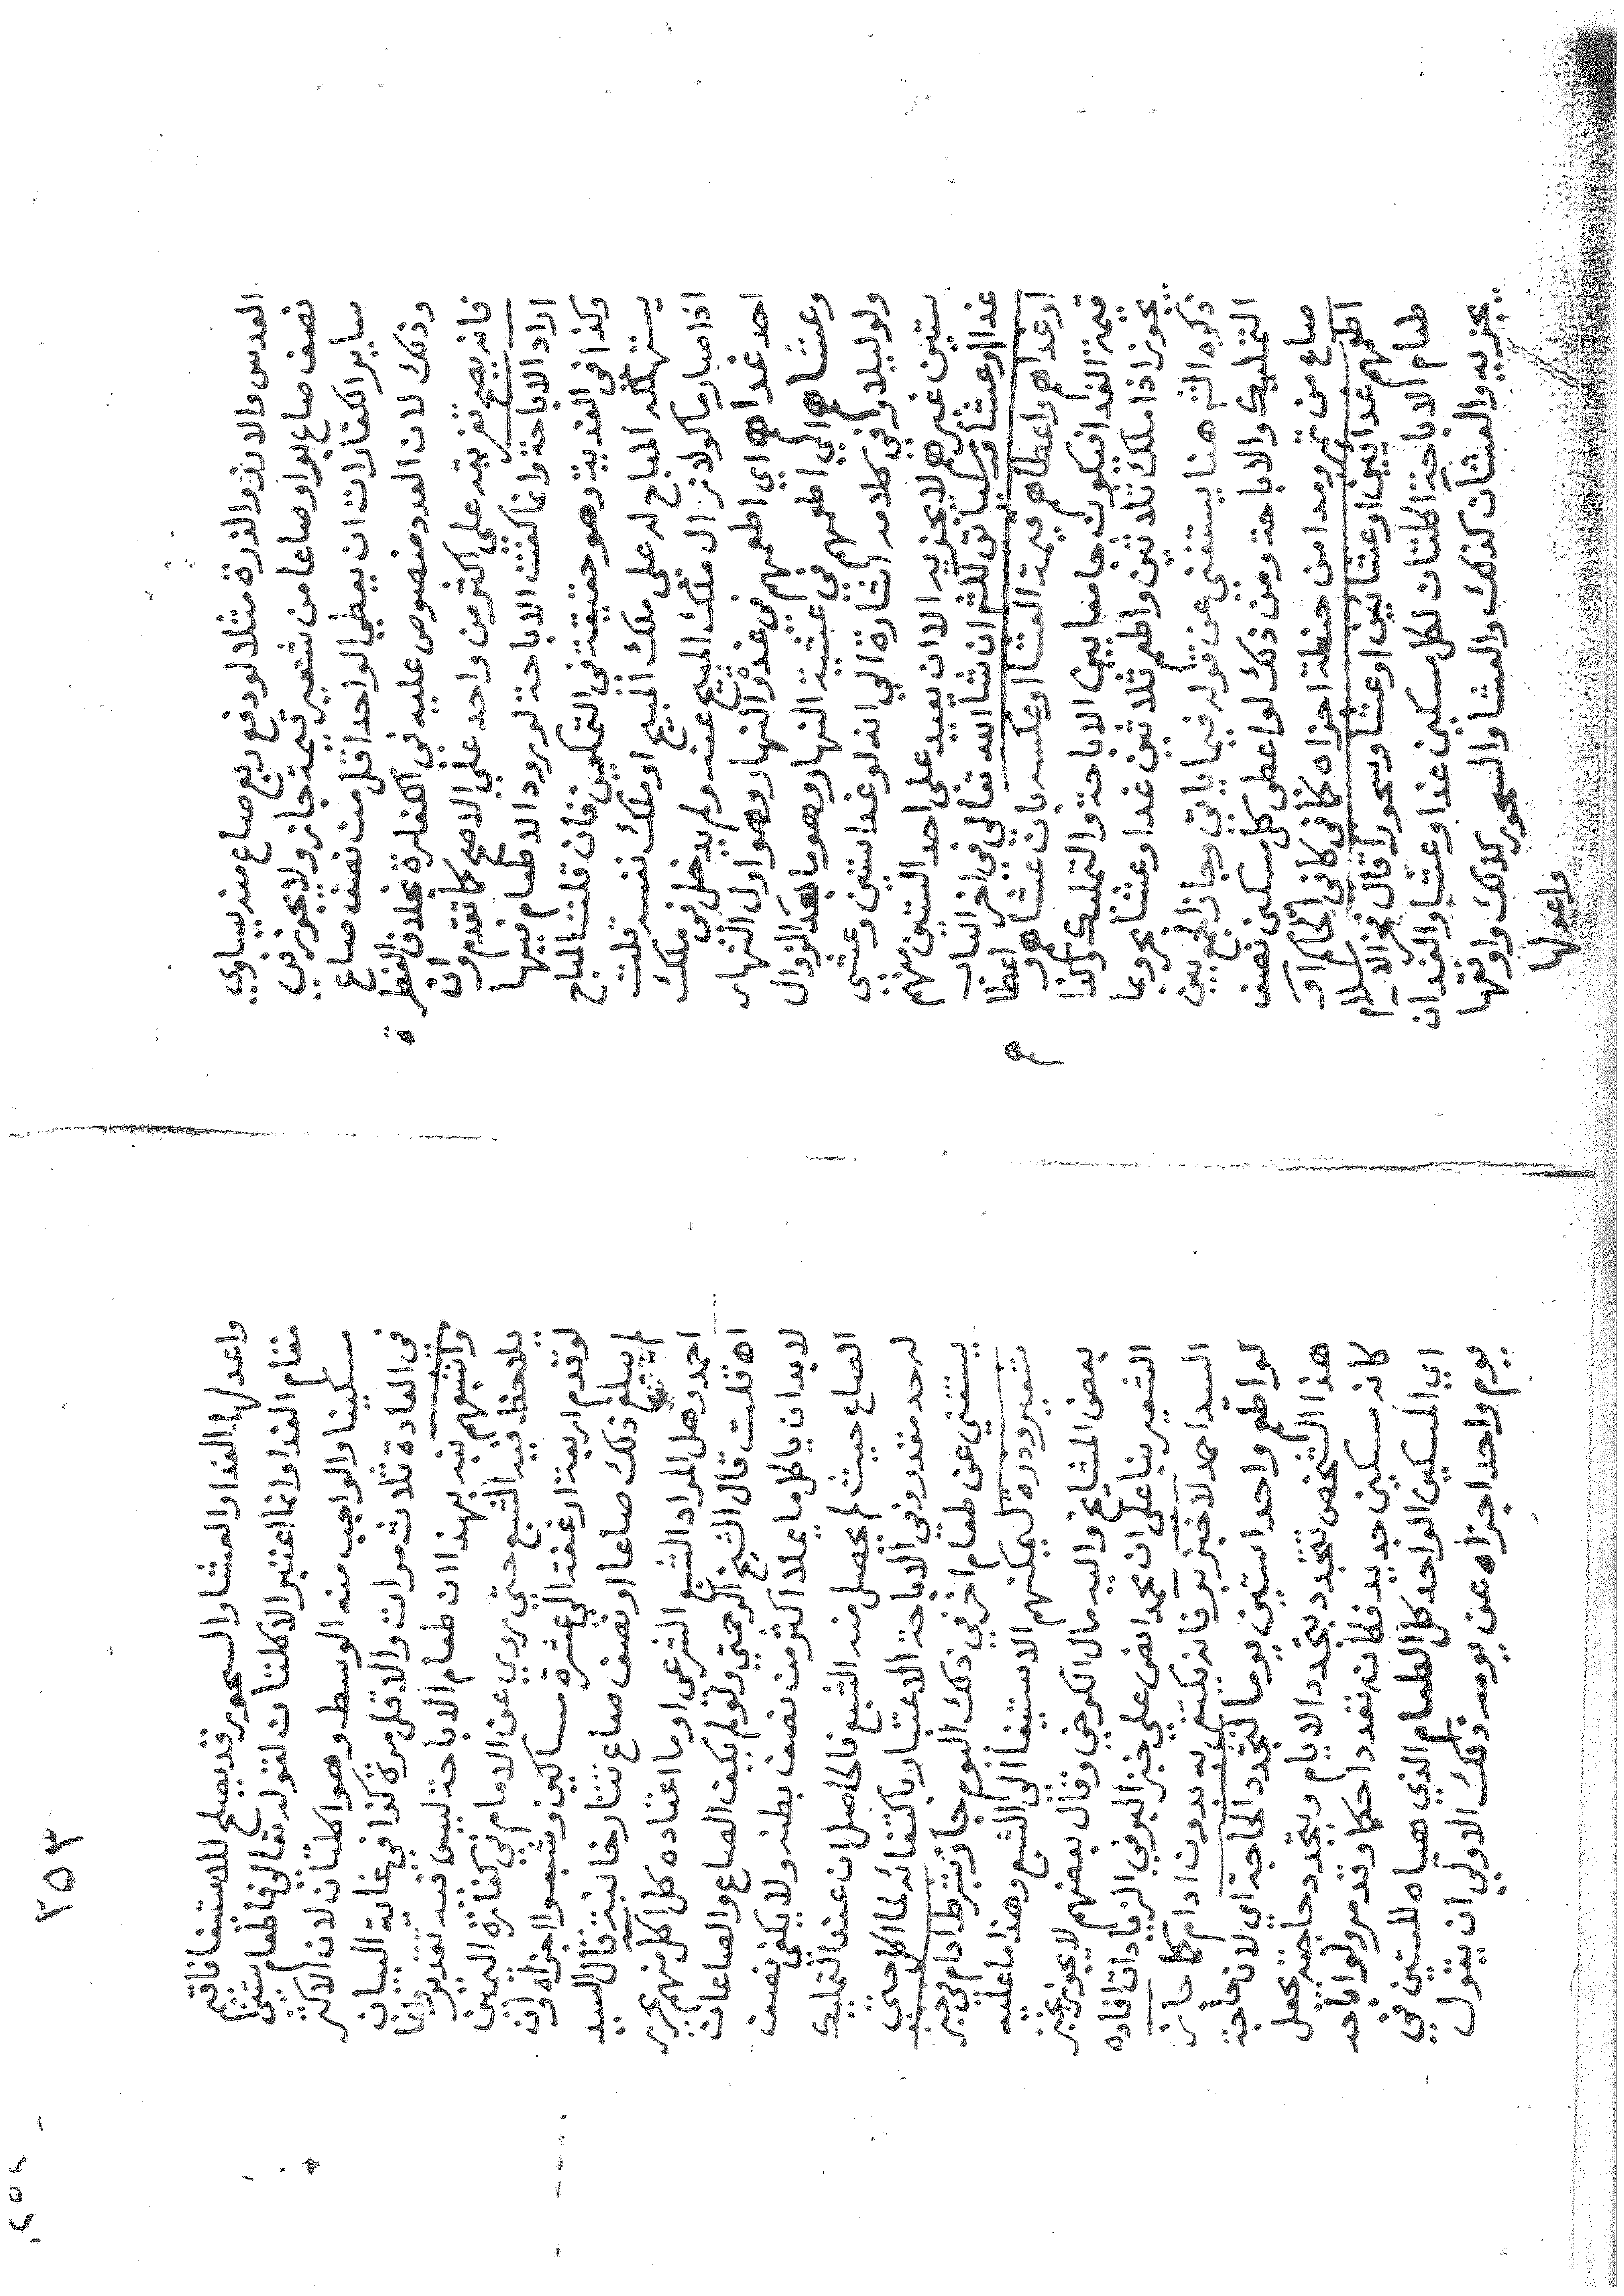 العدس والارز والذرة مثلا لو دفع ربع صاع منه يساوي
نصف صاع بر او صاعا من شعير قيمة جاز ولا يجوز في
ساير الكفارات ان يعطي الواحد اقل من نصف صاع
وذلك لان العدد منصوص عليه في الكفارة بخلاف الفطرة
فانه يصح تفريقه على اكثر من واحد على الاصح كما تقدم وان
اراد الاباحة وانما كفت الاباحة لورود الاطعام فيها
وكذا في الفدية وهو حقيقة في التمكين فان قلت المباح
يستهلكه المباح له على ملك المبيح او ملك نفسه قلت
اذا صار ماكولا زال ملك المبيح عنه ولم يدخل في ملك
احد غداهم اي اطعمهم في غدو النهار وهو اول النهار
وعشاهم اي اطعمهم في عشية النهار وهو ما بعد الزوال
ولو ليلا وفي كلامه اشارة الي انه لو غدا ستين وعشى
ستين غيرهم لا يجزيه الا ان يعيد على احد الستين منهم
غدا او عشا وسياتي للشم ان شا الله تعالي في اخر الباب
او غداهم واعطاهم قيمة العشا او عكسه بان عشاهم واعطا
قيمة الغدا فيكون جامعا بين الاباحة والتمليك وكذا
يجوز اذا ملك ثلاثين واطعم ثلاثين غدا وعشا
ذكره الشم هنا يستغني عن قوله فيما ياتي وجاز الجمع بين
التمليك والاباحة ومن ذلك لو اعطى كل مسكين نصف
صاع من تمر ومدا من حنطة اجزاه كما في كافي الحاكم او
اطعمهم غدايين او عشايين او عشا وسحورا قال الاسلام
طعام الاباحة اكلتان لكل مسكين غدا وعشا والغدان
يجزيه والعشان كذلك والعشا والسحور كذلك واوفقها
واعدلها
٢٥٣
واعدلها الغدا والعشا والسحور قد يصلح للاستيفا فاقيم
مقام الغدا وانما اعتبر الاكلتان لقوله تعالي فاطعام ستين
مسكينا والواجب منه الوسط وهو اكلتان لان الاكثر
في العادة ثلاث مرات والاقل مرة كذا في غاية البيان
واشبعهم نبه بهذا ان طعام الاباحة ليس فيه تقدير وانما
يلاحظ فيه الشبع حتي روي عن الامام في كفارة اليمين
لو قدم اربعة ارغفة الي عشرة مساكين وشبعوا اجزاه وان
لم يبلغ ذلك صاعا او نصف صاع تتارخانية قال السيد
احمد وهل المراد الشبع الشرعي او ما اعتاده كل اكل منهم يحرر
اه قلت قال الشيخ الرحمتي ولو لم يكف الصاع والصاعان
لا بد ان ياكل ما يملا اكثر من نصف بطنه ولا يكفي نصف
الصاع حيث لم يحصل منه الشبع فالحاصل ان عند التمليك
له حد مقدر وفي الاباحة الاعتبار باكتفائه لما اكل حتي
يستغني عن طعام اخر في ذلك اليوم جاز بشرط ادام في خبز
شعير وذرة ليمكنهم الاستيفا الى الشبع وهذا ما عليه
بعض المشايخ واليه مال الكرخي وقال بعضهم لا يجوز بخبز
الشعير بنا على ان محمدا نص علي خبز البر في الزيادات افاده
السيد احمد لا خبز بر فانه يكتفى به بدون ادام كما جاز
لو اطعم واحدا ستين يوما لتجدد الحاجة اي لان حاجة
هذا الشخص تتجدد بتجدد الايام وبتجدد حاجته يجعل
كانه مسكين جديد فكانه تعدد احكما وقد مر ولو اباحه
اي المسكين الواحد كل الطعام الذي هياه للستين في
يوم واحد اجزاه عن يومه ذلك الاولي ان يقول